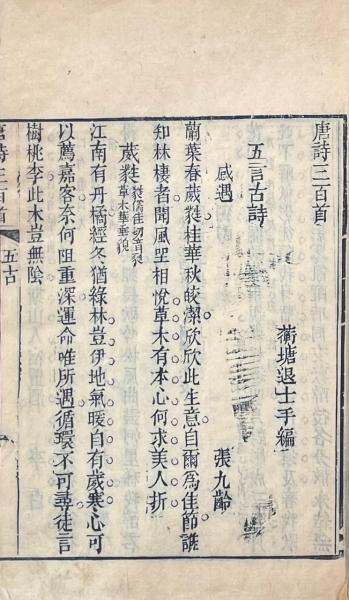 唐詩三百首
蘅塘退士手編
五言古詩
感遇
張九齡
蘭葉春葳蕤桂華秋皎潔欣欣此生意自爾爲佳節誰
知林棲者聞風坐相悅草木有本心何求美人折
葳蕤
草木華垂貌
江南有丹橘經冬猶綠林豈伊地氣暖自有歲寒心可
以薦嘉客奈何阻重深運命唯所遇循環不可尋徒言
樹桃李此木豈無陰
唐詩三百首
五古